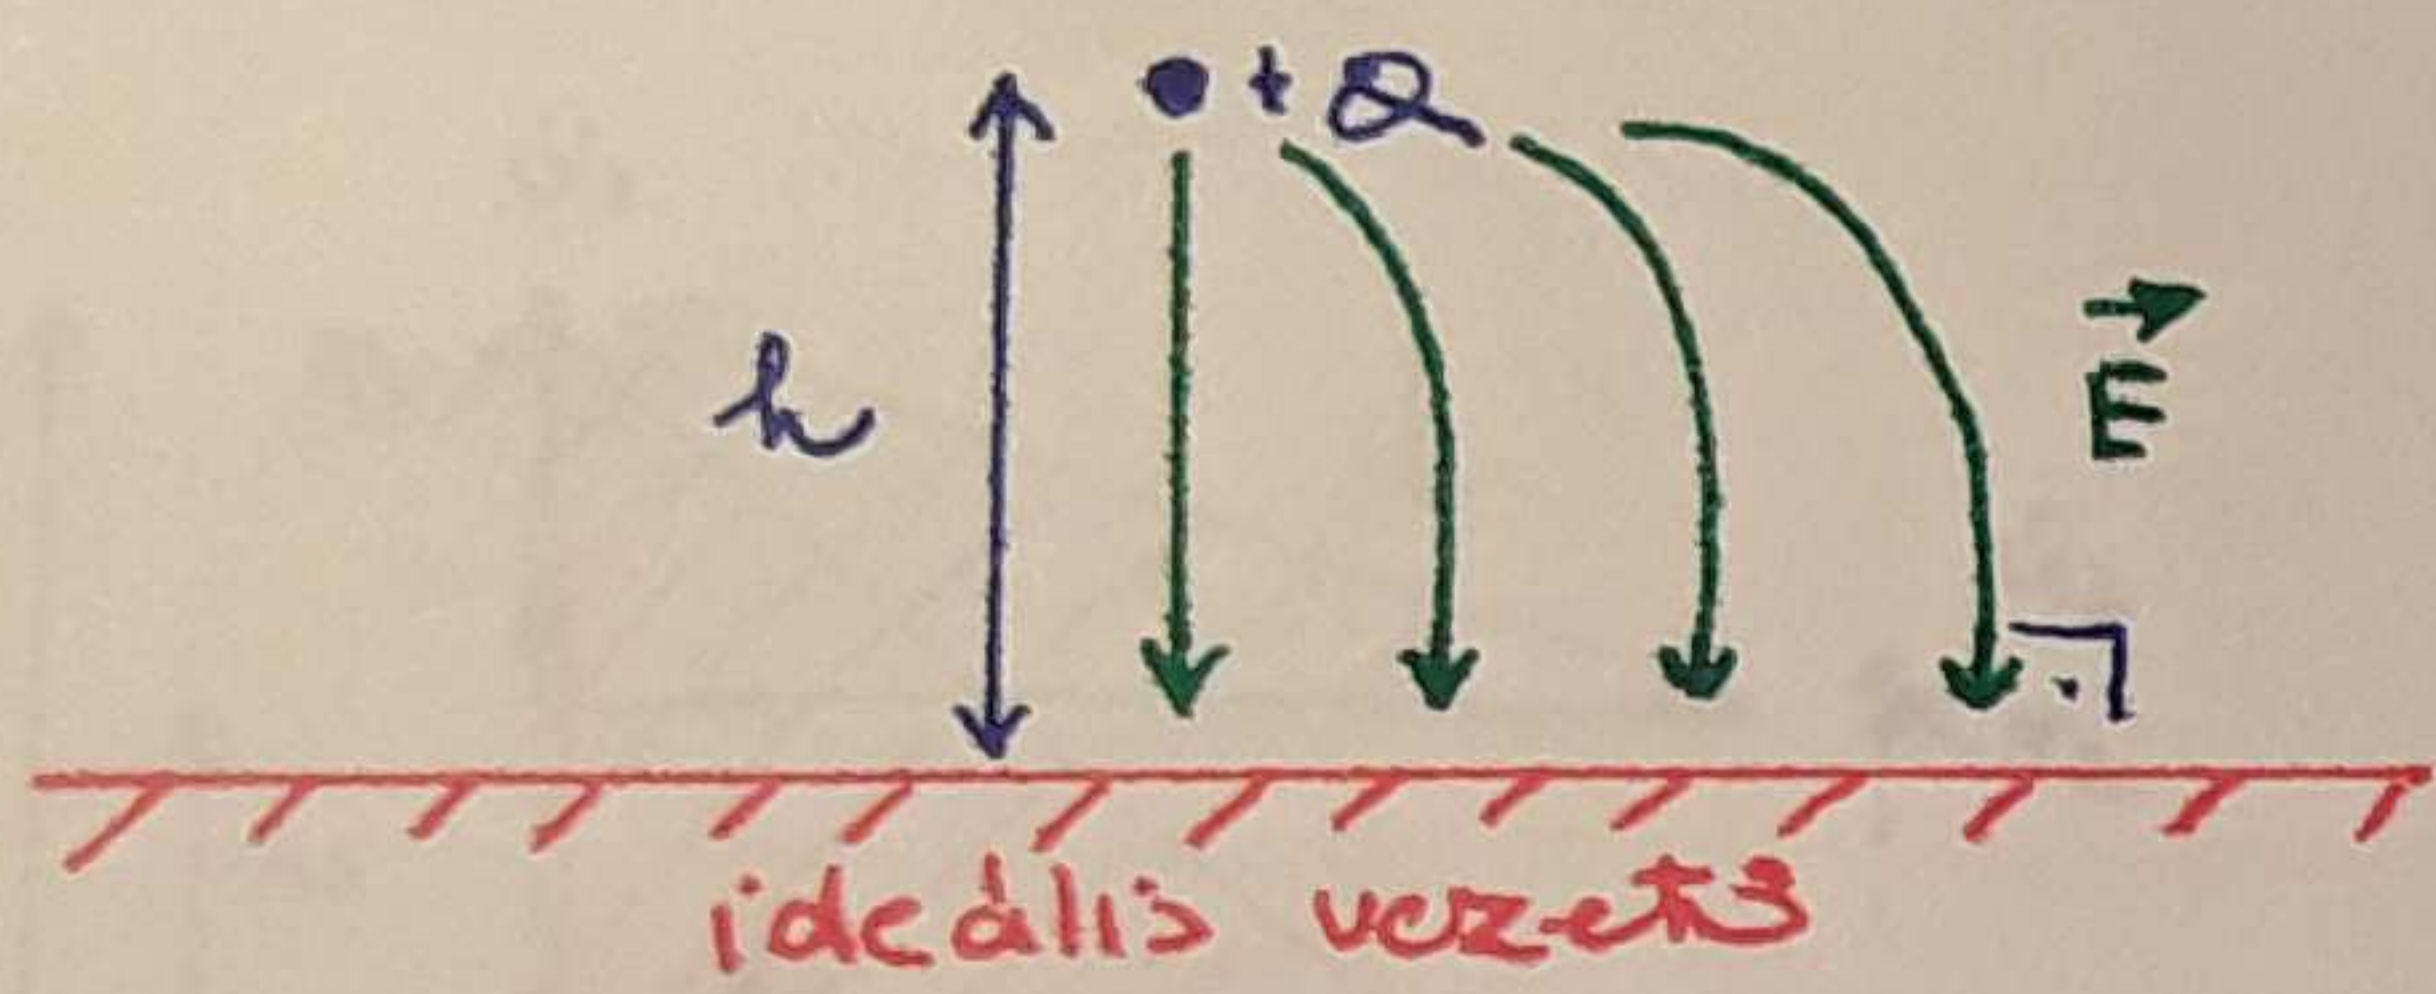 +Q
h
E
ideális vezető